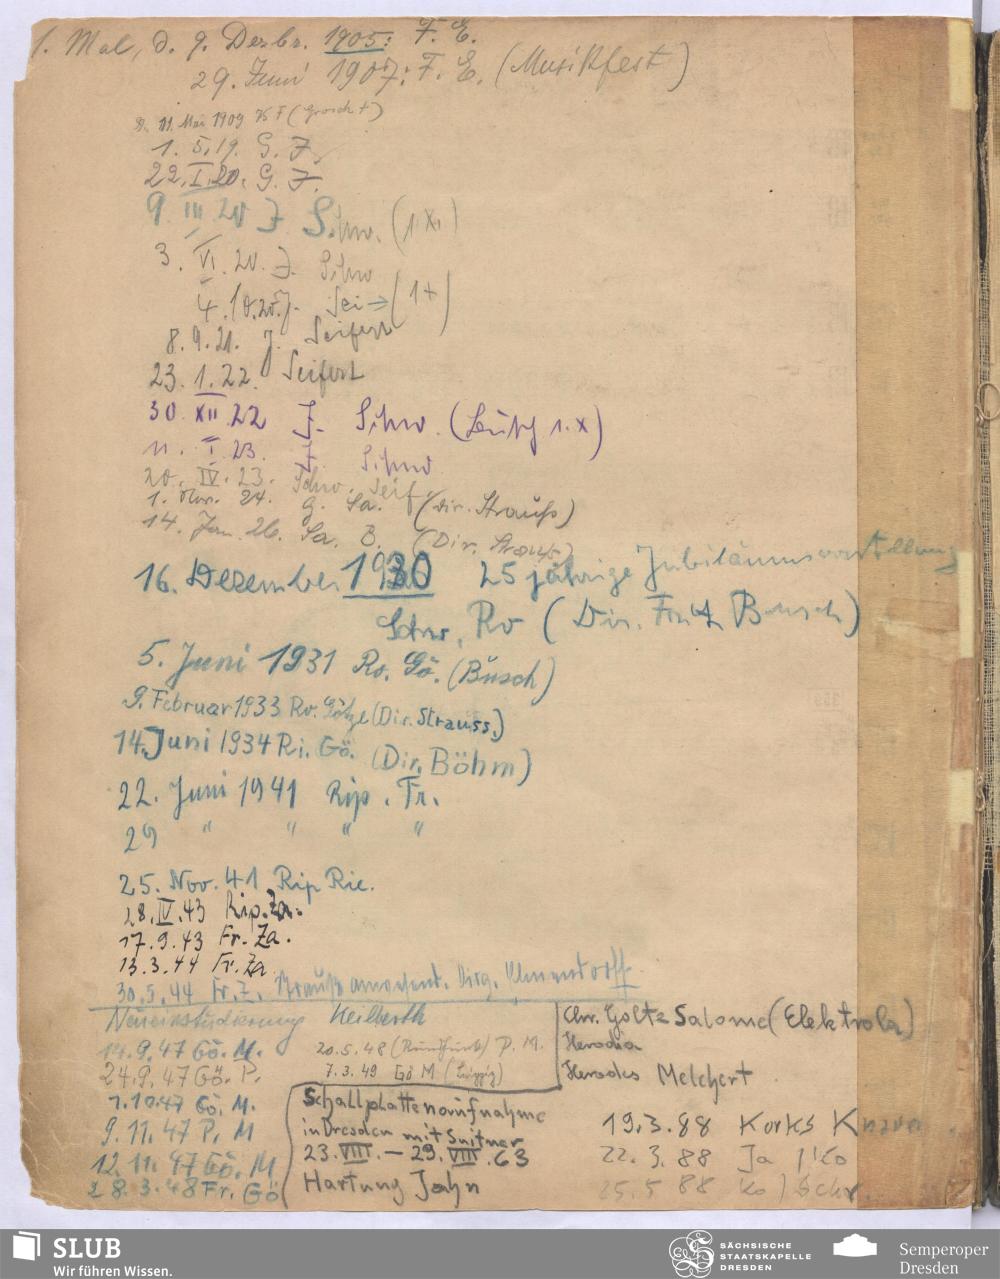 1. Mal, d. 9. Dezbr. 1905: F. E.
29. Juni 1907: F. E. (Musikfest)
11. Mai 1909 K F (Grosch +)
1. 5. 19. G. J.
22. I. 20. G. J.
9. III. 20 J Schw. (1. X.)
3. VI. 20. J. Schw
4. 10. 20. J. Sei (1 +)
8. 9. 21. J. Seifert
23. 1. 22. Seifert
30. XII. 22 J. Schw. (1. X)
11. I. 23. J. Schw
20. IV. 23. Schw. Seif
1. Nov. 24. G. Sa. (Dir. Strauß)
14. Jan. 26. Sa. B. (Dir. Strauß)
16. Dezember 1930 25 jährige Jubiläumsvorstellung
Schw. Rö (Dir. Fritz Busch)
5. Juni 1931 Rö. Gö. (Busch)
9. Februar 1933 Rö. Götze (Dir. Strauss.)
14. Juni 1934 Ri. Gö. (Dir. Böhm)
22. Juni 1941 Rip. Fr.
29 " " " "
25. Nov. 41 Rip Rie.
28. IV. 43 Rip. Za.
17. 9. 43 Fr. Za.
13. 3. 44 Fr. Za
30. 5. 44 Fr. Z. Strauß anwesend. Dirg. Elmendorff
Neueinstudierung Keilberth
14. 9. 47 Gö. M.
24. 9. 47 Gö. P.
7. 10. 47 Gö. M.
9. 11. 47 P. M
12. 11. 47 Gö. M
28. 3. 48 Fr. Gö
20. 5. 48 (Rundfunk) P. M.
7. 3. 49 Gö M (Leipzig)
Chr. Goltz Salome (Elektrola)
Herodia
Herodes Melchert
Schallplattenaufnahme
in Dresden mit Suitner
23. VIII. – 29. VIII. 63
Hartung Jahn
19. 3. 88 Korks Knauer
22. 3. 88 Ja / Ko
25. 5 88 Ko / Schr.
SLUB
Wir führen Wissen.
SÄCHSISCHE
STAATSKAPELLE
DRESDEN
Semperoper
Dresden